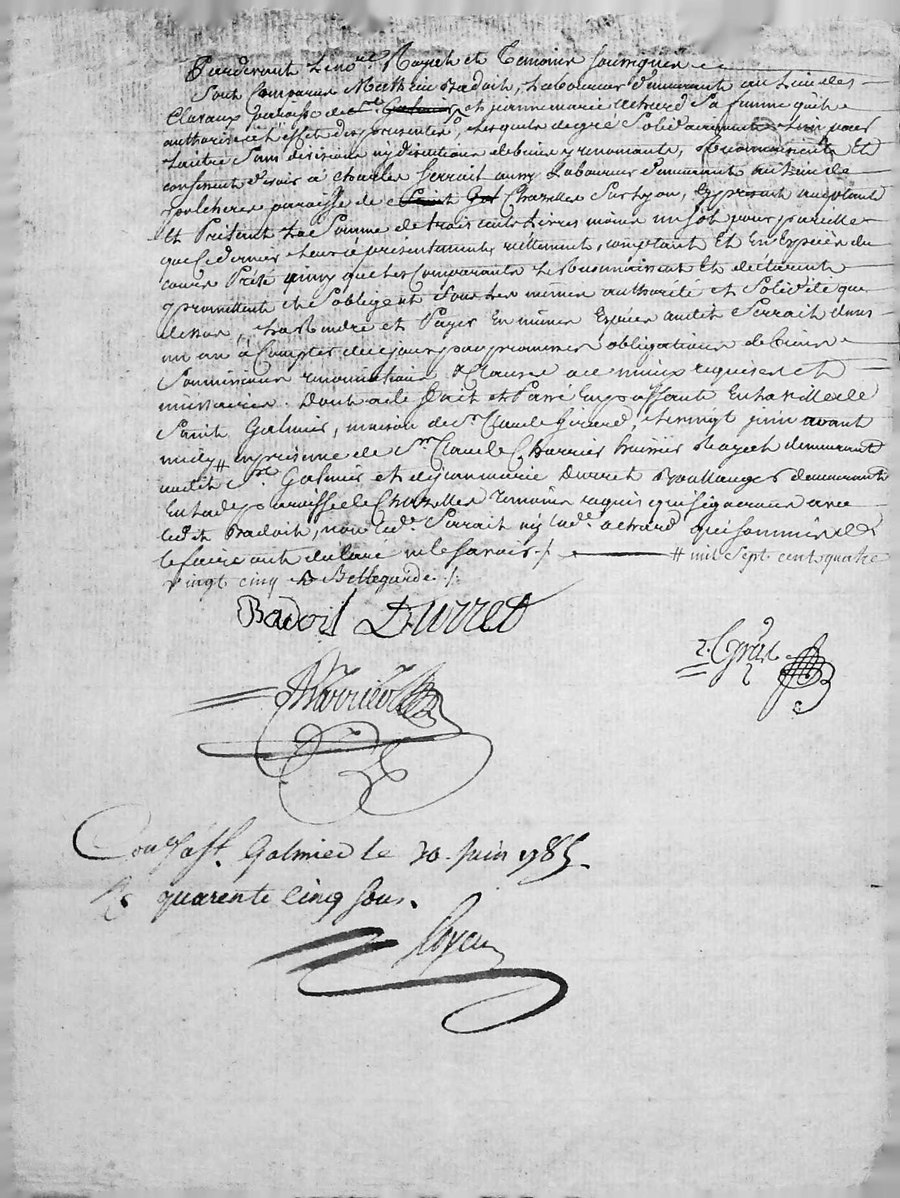 Pardevant Le no.re Royal et Temoins soussignés
Sont Comparus Mathieu Badoit, Laboureur demeurant au Lieu des
Clavaux paroisse de st Galmier, et jeanne marie sa femme qu'il
authorise à L'effet des presentes, Lesquels de gré Solidairement L'un pour
L'autre Sans division ny discution de biens y renoncants, Reconnoissent Et
confessent devoir à Charles Serrait aussy Laboureur demeurant au Lieu de
paroisse de Saint Gal Chazelles Sur Lyon, Cy present acceptant
Et Prêtant La Somme de trois cents Livres moins un sol pour pareille
que Ce dernier Leur a présentement réellement, comptant Et En Espèces du
cours Prêté ainsy que Les Comparants Le Reconnoissent Et déclarent
promettent et s'obligent Sous Les mêmes authorité et Solidité que
dessus, La Rendre et Payer En mêmes Espèces audit Serrait dans
un an à Compter de ce jour par promesses obligations de biens
Soumissions renonciations & Clauses à ce mieux requises et
nécessaires. Dont acte Fait et Passé En La Ville de
Saint Galmier, maison de sr. Claude Girard, Le vingt juin avant
midy # en presence de sr Claude Charrier huissier Royal demeurant
audit st Galmier et de jeanmarie Durret Boullanger demeurant
En La de. paroisse de Chazelles Temoins requis qui signeront avec
Led.t Badoit, non Led. Serrait ny Lad. qui sommés de
le faire ont déclaré ne le savoir ./. # mil Sept cent quatre
vingt cinq Bellegarde ./.
Badoit Durret
Charrier
Con.lé à st. Galmier le 30 juin 1785.
R. quarente cinq sous.